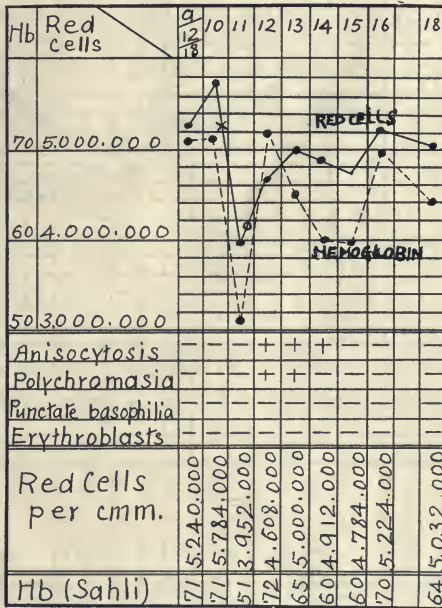 Hb Red cells 9/12/18 10 11 12 13 14 15 16 18
RED CELLS
70 5.000.000
60 4.000.000
HEMOGLOBIN
50 3.000.000
Anisocytosis — — — + + + — — —
Polychromasia — — — + + — — — —
Punctate basophilia — — — — — — — — —
Erythroblasts — — — — — — — — —
Red Cells per cmm. 5.240.000 5.784.000 3.952.000 4.608.000 5.000.000 4.912.000 4.784.000 5.224.000 5.032.000
Hb (Sahli) 71 71 51 72 65 60 60 70 64